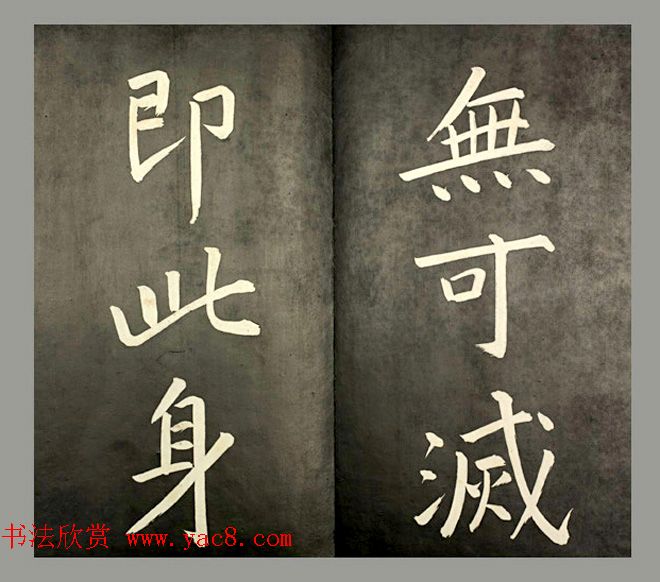 無可滅
即此身
书法欣赏 www.yac8.com